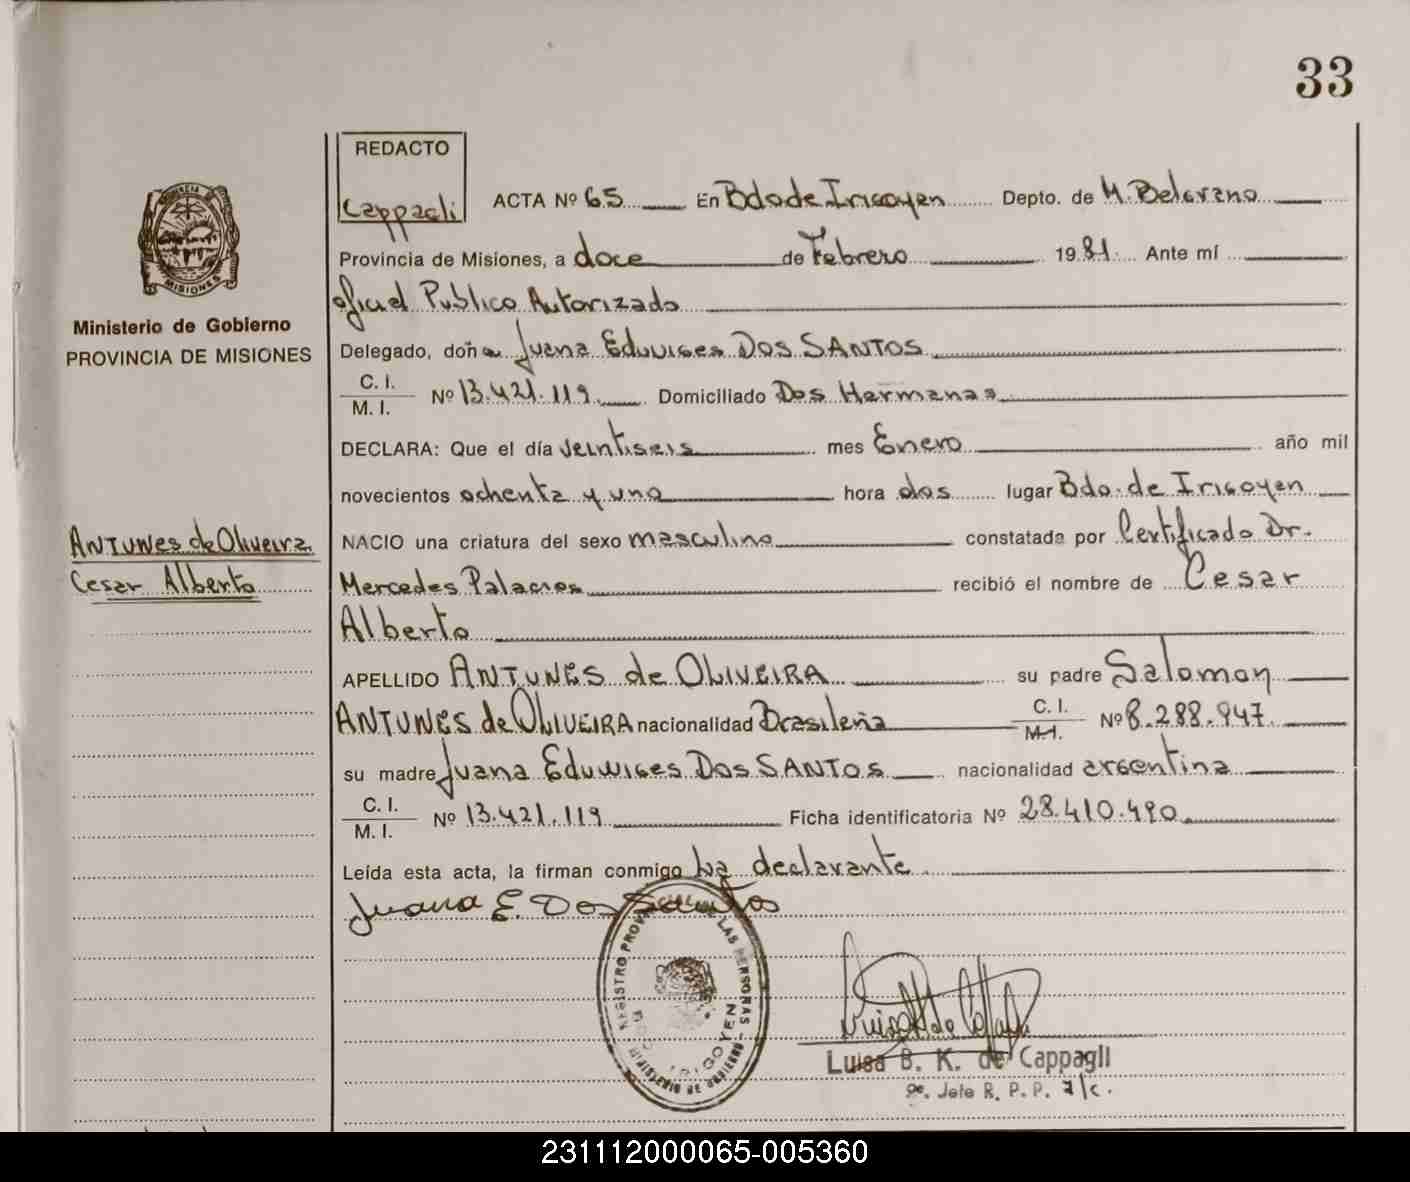 33
REDACTO
Cappagli
ACTA Nº 65 En Bdo de Irigoyen Depto. de M. Belgrano
Provincia de Misiones, a doce de Febrero 1981. Ante mí
oficial Publico Autorizado
Delegado, doña Juana Eduviges Dos SANTOS
C. I.
M. I. Nº 13.421.119 Domiciliado Dos Hermanas
DECLARA: Que el día veintiseis mes Enero año mil
novecientos ochenta y uno hora dos lugar Bdo. de Irigoyen
NACIO una criatura del sexo masculino constatada por Certificado Dr.
Mercedes Palacios recibió el nombre de Cesar
Alberto
APELLIDO ANTUNES de OLIVEIRA su padre Salomon
ANTUNES de OLIVEIRA nacionalidad Brasileña C. I.
M.I. Nº 8.288.947.
su madre Juana Eduwiges Dos SANTOS nacionalidad argentina
C. I.
M. I. Nº 13.421.119 Ficha identificatoria Nº 28.410.490
Leída esta acta, la firman conmigo La declarante.
Juana E. Dos Santos
PROVINCIA DE
MISIONES
Ministerio de Gobierno
PROVINCIA DE MISIONES
ANTUNES de Oliveira
Cesar Alberto
REGISTRO PROVINCIAL DE LAS PERSONAS - MINISTERIO DE GOBIERNO -
BDO. IRIGOYEN
Luisa B. K. de Cappagli
Jefe R. P. P. a/c.
231112000065-005360